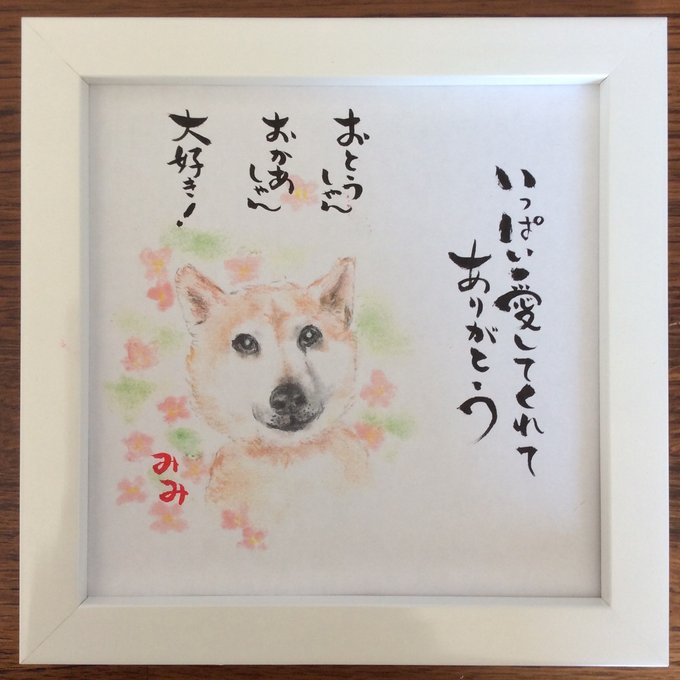 いっぱい愛してくれて
ありがとう
おとうしゃん
おかあしゃん
大好き!
みみ